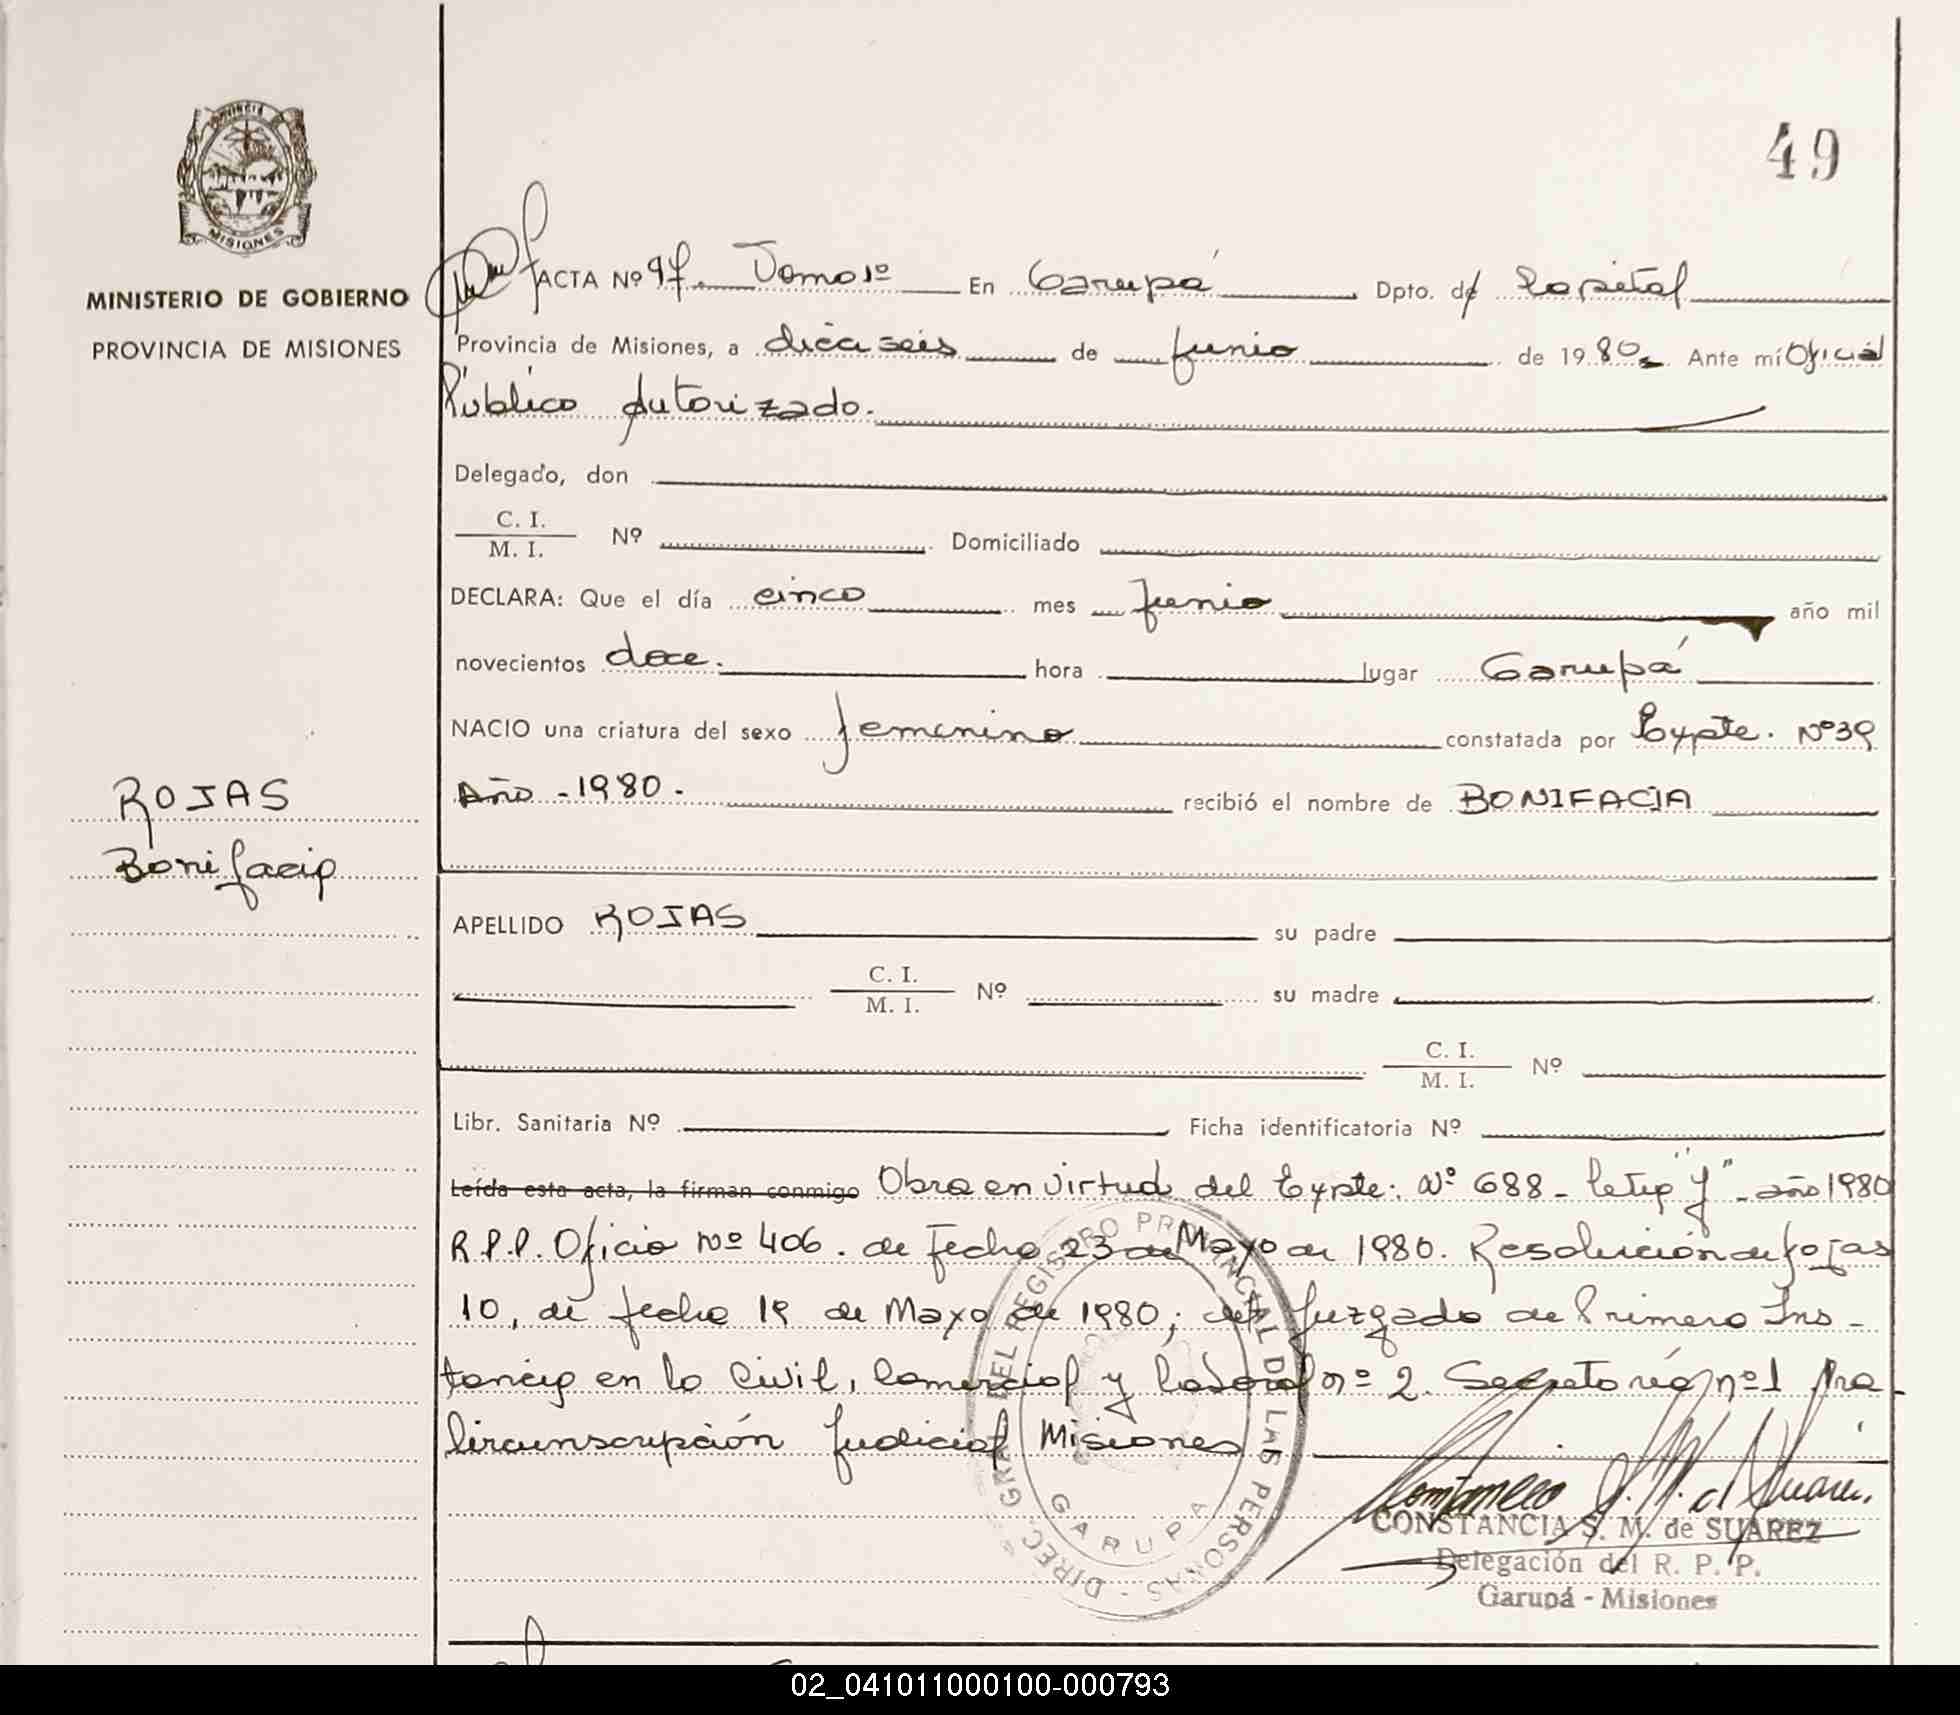 49
PROVINCIA
MISIONES
MINISTERIO DE GOBIERNO
PROVINCIA DE MISIONES
ROJAS
Bonifacia
ACTA Nº 97. Tomo 1º En Garupá Dpto. de Capital
Provincia de Misiones, a dieciseis de Junio de 1980 Ante mí Oficial
Público Autorizado.
Delegado, don
C. I.
M. I. Nº Domiciliado
DECLARA: Que el día cinco mes Junio año mil
novecientos doce. hora lugar Garupá
NACIO una criatura del sexo femenino constatada por Expte. Nº 39
Año - 1980. recibió el nombre de BONIFACIA
APELLIDO ROJAS su padre
C. I.
M. I. Nº su madre
C. I.
M. I. Nº
Libr. Sanitaria Nº Ficha identificatoria Nº
Leída esta acta, la firman conmigo Obra en virtud del Expte. Nº 688 - letra "Y" - año 1980
R.P.P. Oficio Nº 406. de fecha 23 de Mayo de 1980. Resolución de fojas
10, de fecha 19 de Mayo de 1980; del Juzgado de Primera Ins-
tancia en lo Civil, Comercial y Laboral nº 2. Secretaría nº 1 Pra.
Circunscripción Judicial Misiones
DIREC. GRAL. DEL REGISTRO PROVINCIAL DE LAS PERSONAS -
GARUPA
Constancia S. M. d Suarez.
CONSTANCIA S. M. de SUAREZ
Delegación del R. P. P.
Garupá - Misiones
02_041011000100-000793